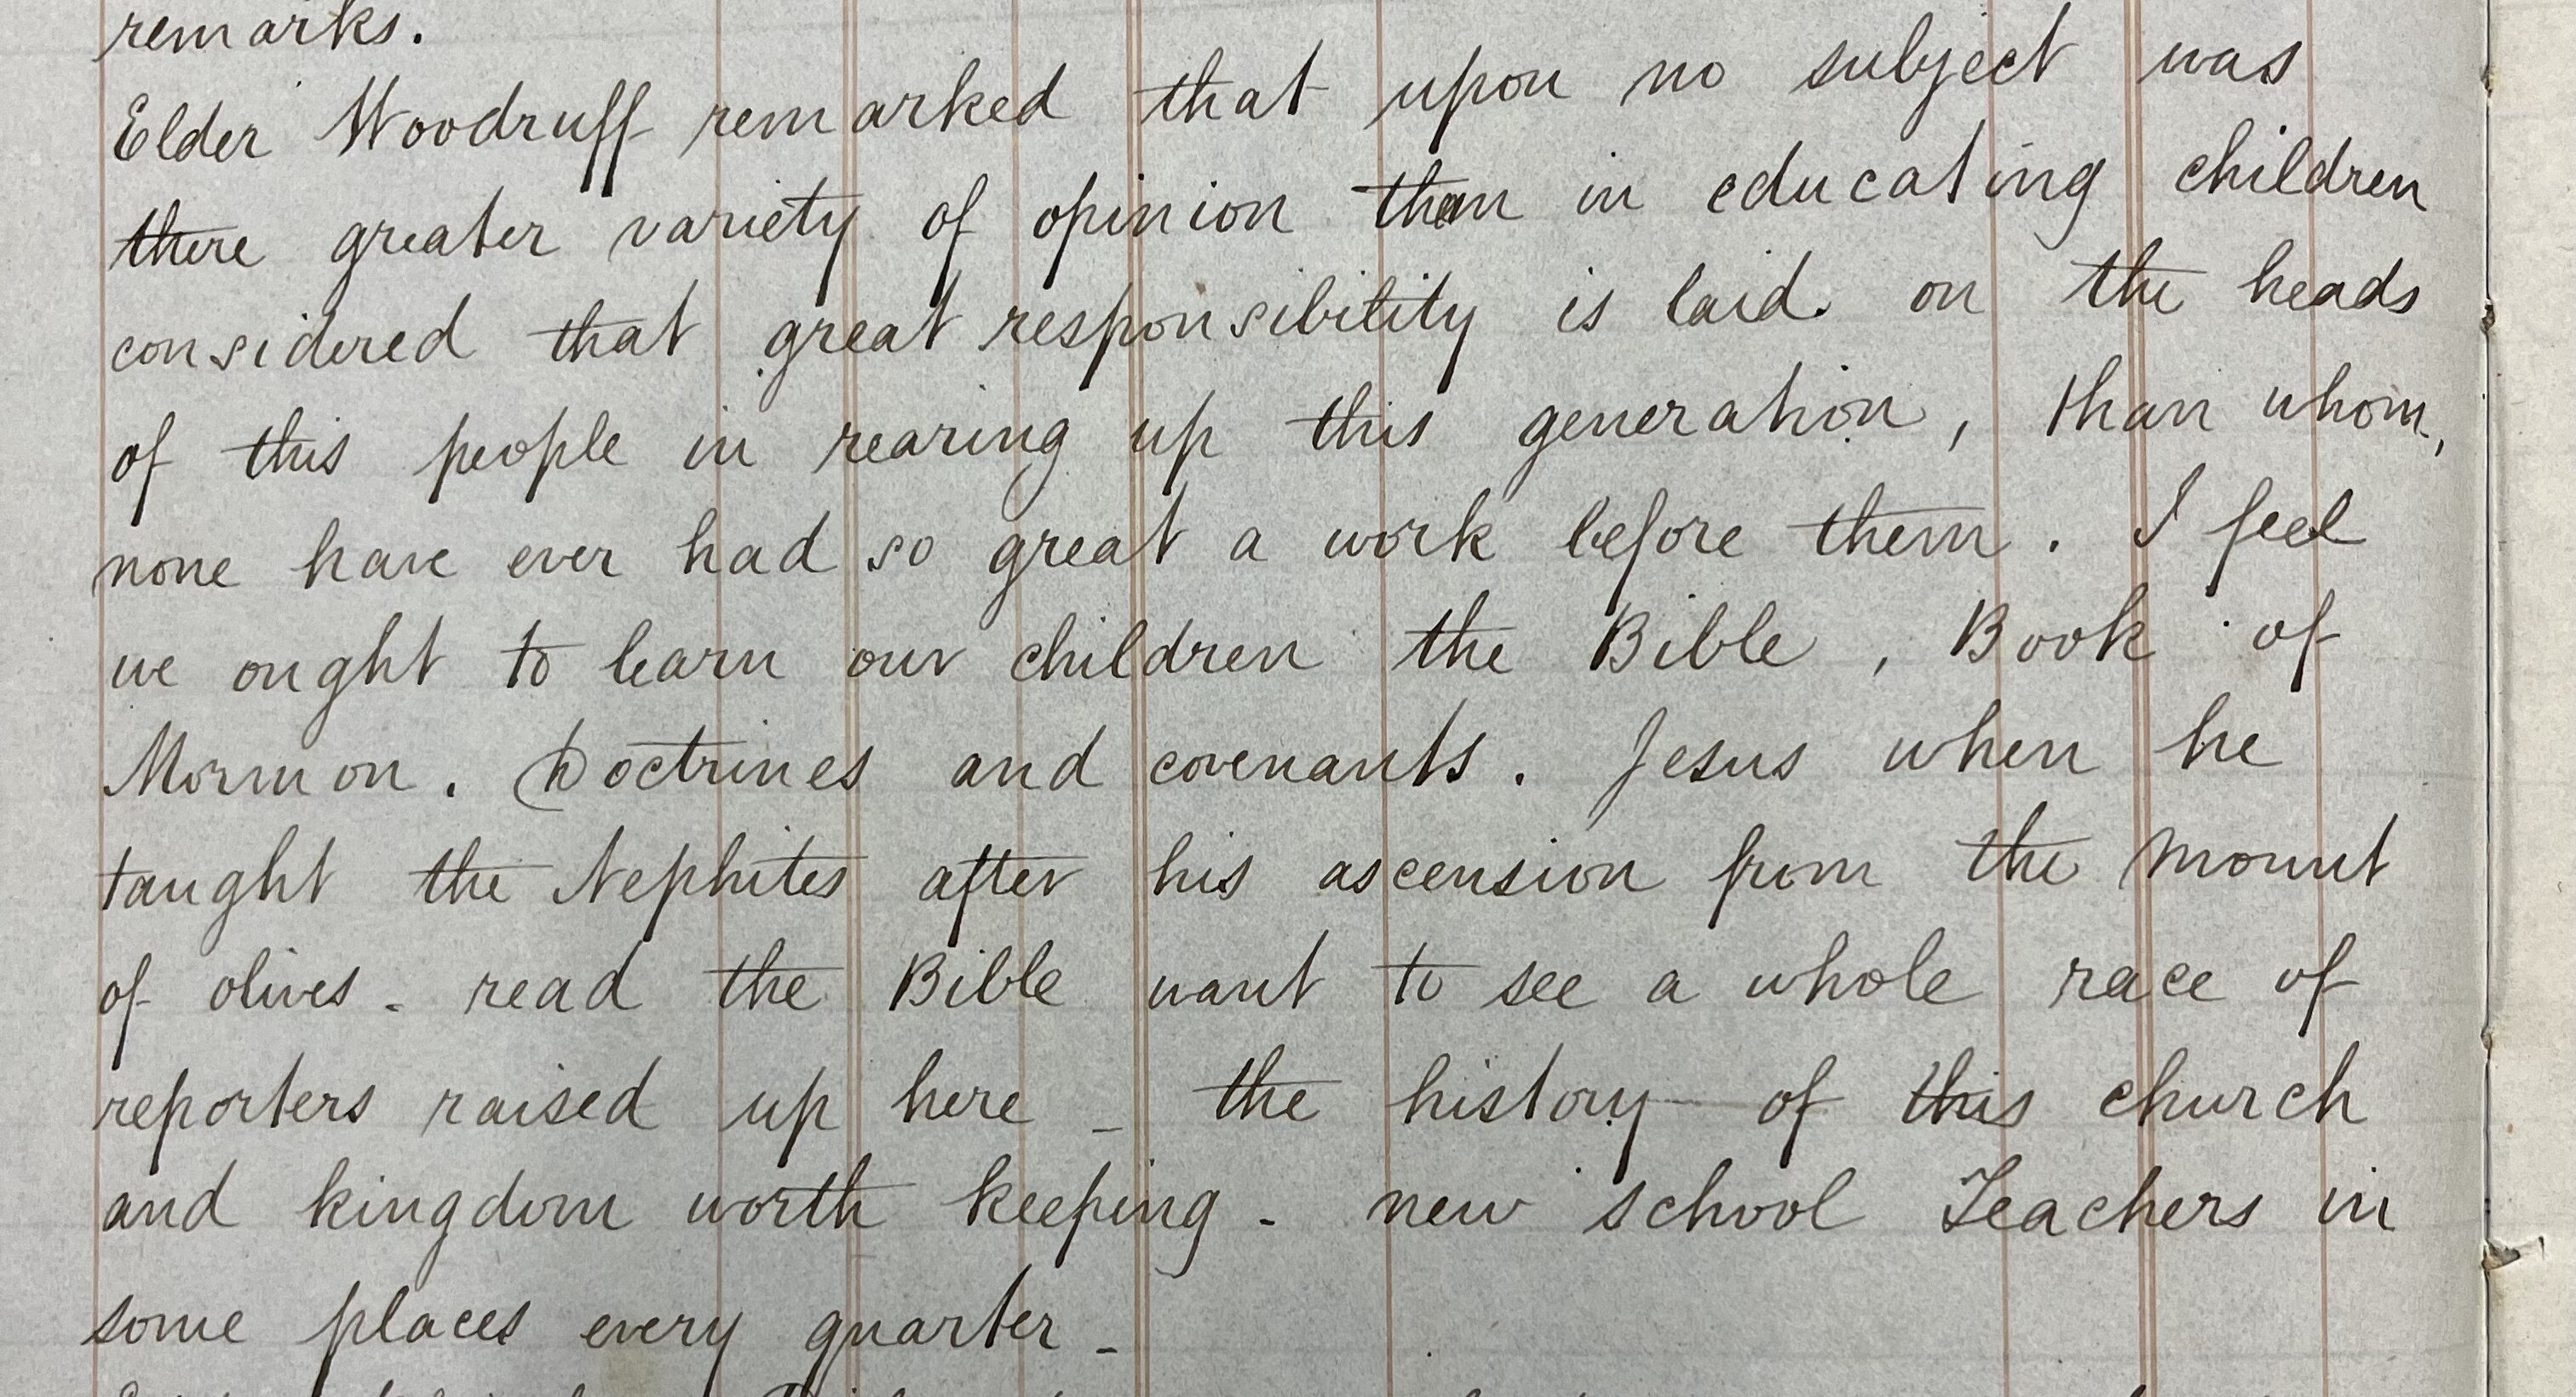 remarks.
Elder Woodruff remarked that upon no subject was
there greater variety of opinion than in educating children
considered that great responsibility is laid on the heads
of this people in rearing up this generation, than whom,
none have ever had so great a work before them. I feel
we ought to learn our children the Bible, Book of
Mormon. Doctrines and covenants. Jesus when he
taught the Nephites after his ascension from the Mount
of olives - read the Bible want to see a whole race of
reporters raised up here - the history of this church
and kingdom worth keeping - new school Teachers in
some places every quarter -